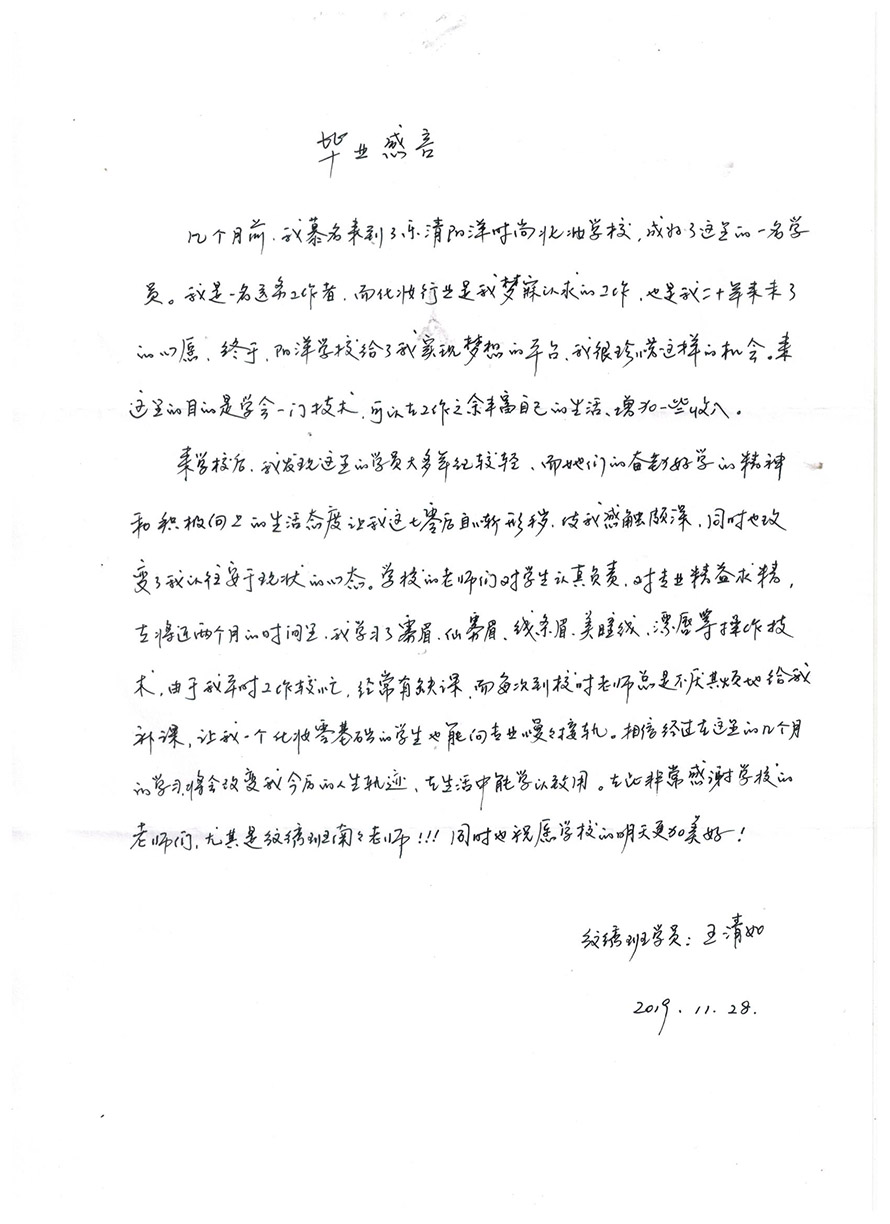 毕业感言
几个月前，我慕名来到了乐清阳洋时尚化妆学校，成为了这里的一名学
员。我是一名医务工作者，而化妆行业是我梦寐以求的工作，也是我二十年来未了
的心愿，终于，阳洋学校给了我实现梦想的平台，我很珍惜这样的机会。来
这里的目的是学会一门技术，可以在工作之余丰富自己的生活、增加一些收入。
来学校后，我发现这里的学员大多年纪较轻，而她们的奋勤好学的精神
和积极向上的生活态度让我这七零后自惭形秽，使我感触颇深，同时也改
变了我以往安于现状的心态。学校的老师们对学生认真负责，对专业精益求精，
在将近两个月的时间里，我学习了雾眉、仙雾眉、线条眉、美瞳线、漂唇等操作技
术，由于我平时工作较忙，经常有缺课，而每次到校时老师总是不厌其烦地给我
补课，让我一个化妆零基础的学生也能向专业慢々接轨。相信经过在这里的几个月
的学习，将会改变我今后的人生轨迹，在生活中能学以致用。在此非常感谢学校的
老师们，尤其是纹绣班南々老师！！！同时也祝愿学校的明天更加美好！
纹绣班学员：王清如
2019.11.28.